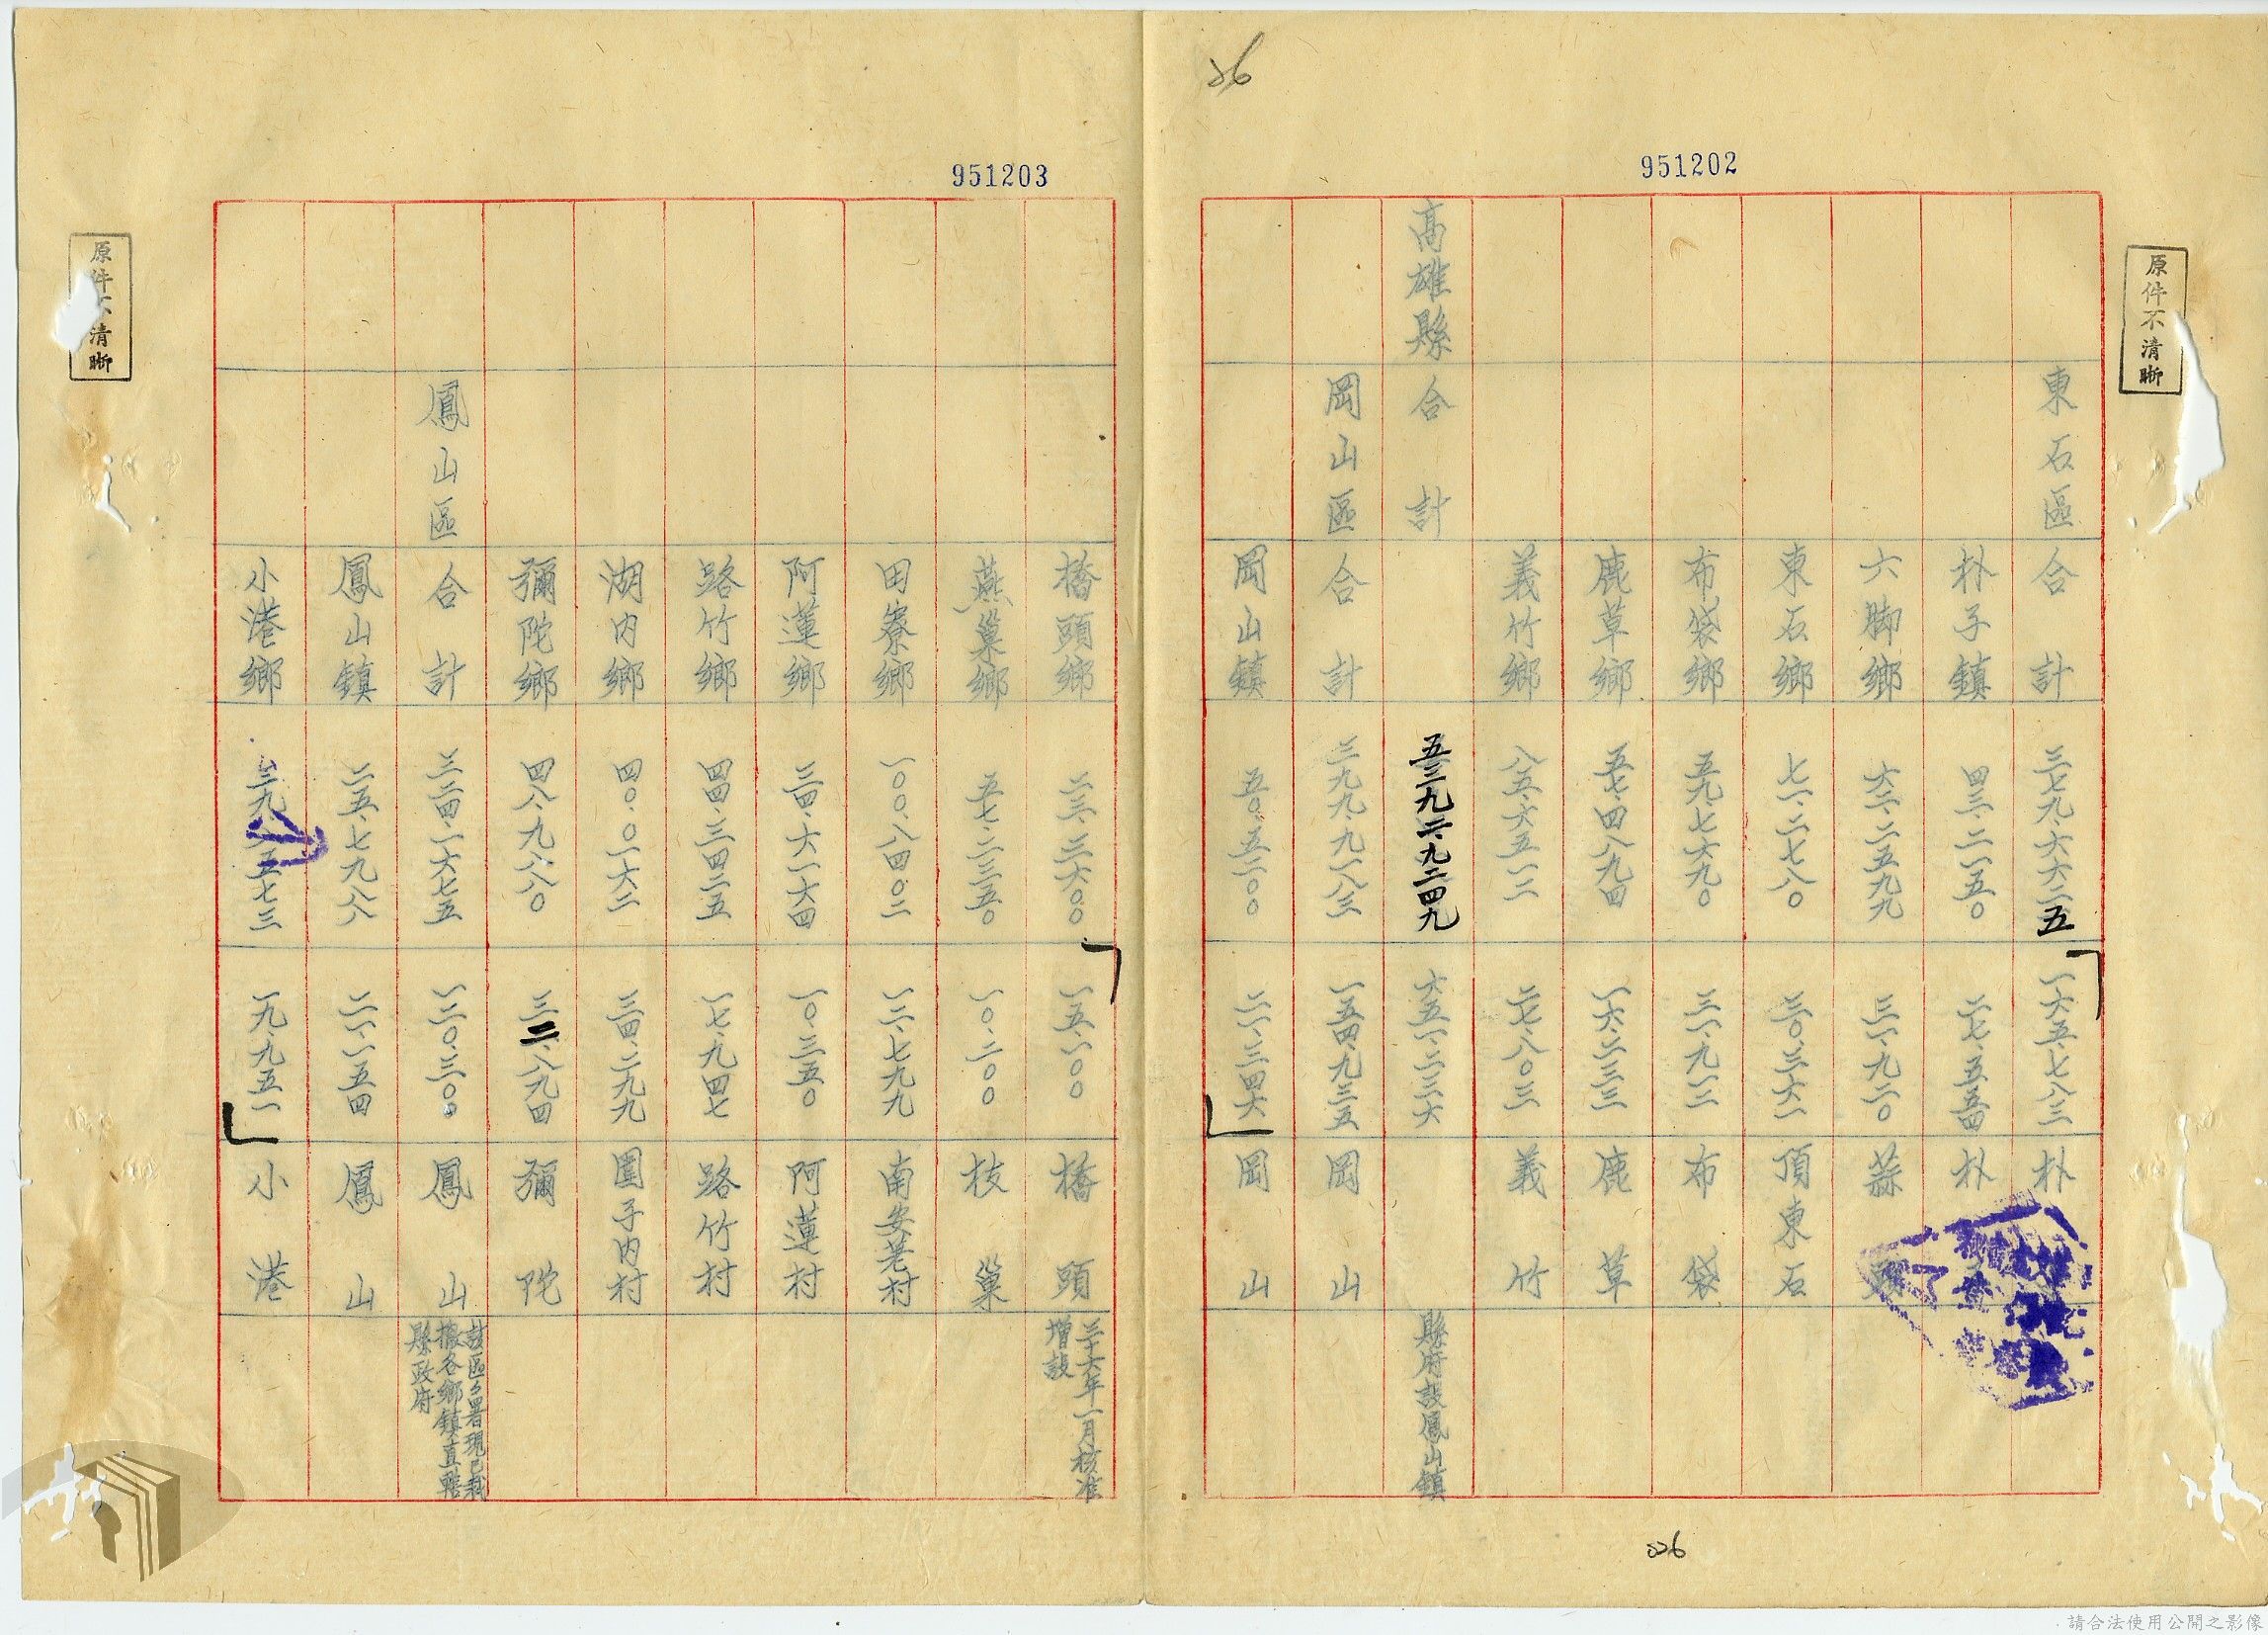 026
951202
原件不清晰
東石區 合計 三七九.六六二五 一六五.七八三 朴子
朴子鎮 四三.二一五〇 二七.五五四 朴子
六腳鄉 六二.二五九九 三一.九二〇 蒜頭
東石鄉 七一.二七八〇 三〇.三六一 頂東石
布袋鄉 五九.七六九〇 三一.九一二 布袋
鹿草鄉 五七.四八九四 一六.二三三 鹿草
義竹鄉 八五.六五一二 二七.八〇三 義竹
高雄縣 合計 五三九二.九二四九 六五一.二三六 縣府設鳳山鎮
岡山區 合計 三九九.九一八三 一五四.九三五 岡山
岡山鎮 五〇.五二〇〇 二一.三四六 岡山
026
951203
橋頭鄉 二三.三六〇〇 一五.一〇〇 橋頭 三十六年一月核准增設
燕巢鄉 五七.二三五〇 一〇.二〇〇 枝巢
田寮鄉 一〇〇.八四〇二 一二.七九九 南安荖村
阿蓮鄉 三四.六一六四 一〇.三五〇 阿蓮村
路竹鄉 四四.三四二五 一七.九四七 路竹村
湖內鄉 四〇.〇一六二 三四.二九九 圍子內村
彌陀鄉 四八.九八八〇 三二.八九四 彌陀
鳳山區 合計 三二四.一六七五 一二〇.三〇〇 鳳山 該區區署現已裁撤各鄉鎮直轄縣政府
鳳山鎮 二五.七九八八 二一.一五四 鳳山
小港鄉 三九.八五七三 一九.九五一 小港
原件不清晰
請合法使用公開之影像